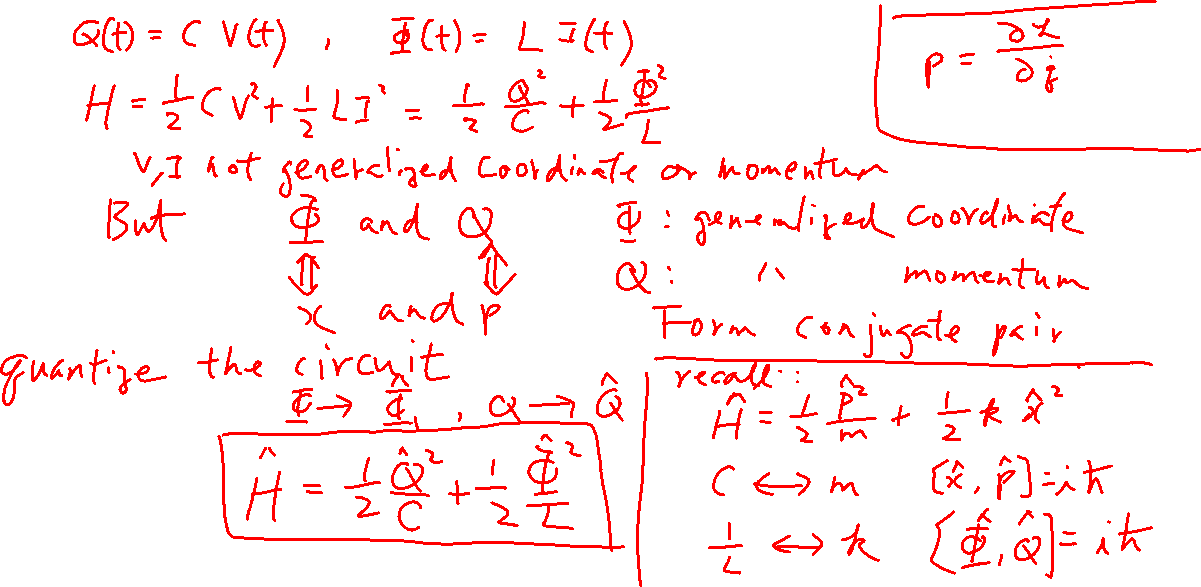 Q(t) = C V(t) , Φ(t) = L I(t)
p = ∂ℒ/∂q̇
H = 1/2 C V² + 1/2 L I² = 1/2 Q²/C + 1/2 Φ²/L
V, I not generalized coordinate or momentum
But Φ and Q Φ : generalized coordinate
⇕ ⇕ Q : 〃 momentum
x and p Form conjugate pair
quantize the circuit
Φ → Φ̂ , Q → Q̂
Ĥ = 1/2 Q̂²/C + 1/2 Φ̂²/L
recall :
Ĥ = 1/2 p̂²/m + 1/2 k x̂²
C ↔ m [x̂, p̂] = iħ
1/L ↔ k [Φ̂, Q̂] = iħ